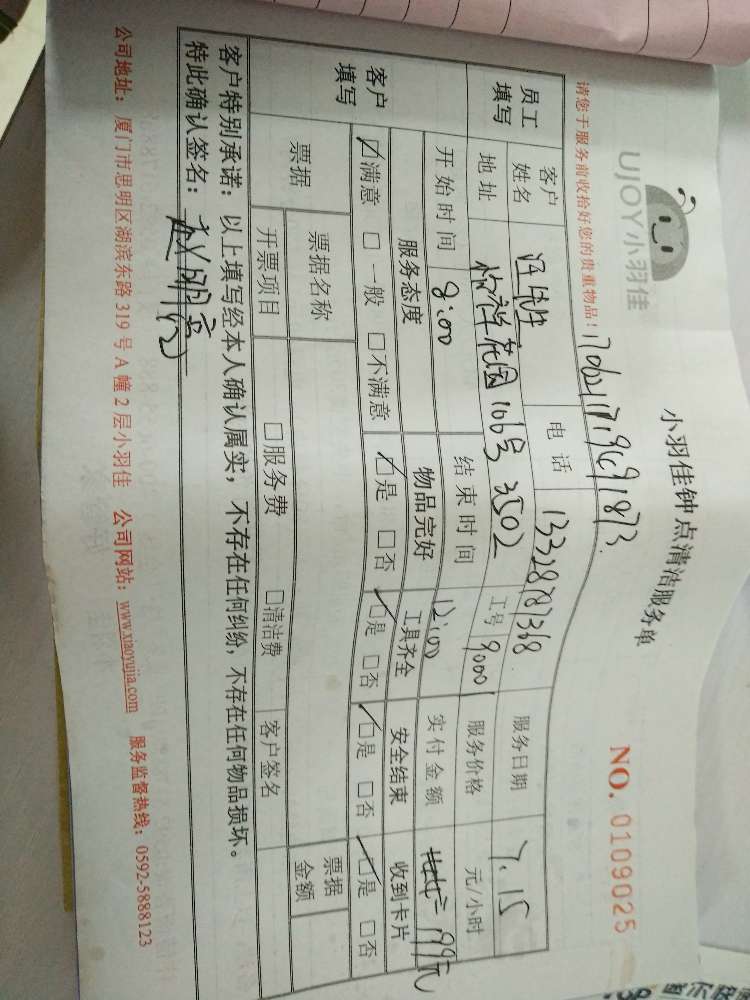 UJOY小羽佳
小羽佳钟点清洁服务单
NO. 0109025
请您于服务前收拾好您的贵重物品！
员工填写 客户姓名 电话 服务日期 7.15
地址 106号3502 工号 90001 服务价格 元/小时
开始时间 8:00 结束时间 12:00 实付金额 199元
客户填写 服务态度 物品完好 工具齐全 安全结束 收到卡片
☑满意 □一般 □不满意 ☑是 □否 ☑是 □否 ☑是 □否 ☑是 □否
票据 票据名称 票据金额
开票项目 □服务费 □清洁费 客户签名
客户特别承诺：以上填写经本人确认属实，不存在任何纠纷，不存在任何物品损坏。
特此确认签名：
公司地址：厦门市思明区湖滨东路 319 号 A 幢 2 层小羽佳 公司网站：www.xiaoyujia.com 服务监督热线：0592-5888123